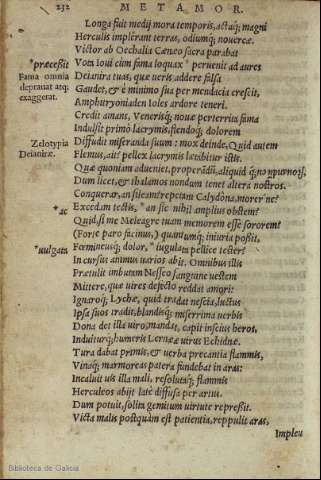 232 METAMOR.
Longa fuit medij mora temporis, actaq; magni
Herculis implerant terras, odiumq; nouercæ.
Victor ab Oechalia Cæneo sacra parabat
*præcessit Vota Ioui cùm fama loquax * peruenit ad aures
Fama omnia Deianira tuas, quæ ueris addere falsa
deprauat atq; Gaudet, & è minimo sua per mendacia crescit,
exaggerat. Amphitryoniaden Ioles ardore teneri.
Credit amans, Venerisq; nouæ perterrita fama
Indulsit primò lacrymis, flendoq; dolorem
Zelotypia Diffudit miseranda suum: mox deinde, Quid autem
Deianiræ. Flemus, ait? pellex lacrymis lætabitur istis.
Quæ quoniam adueniet, properādū, aliquid q́;
Dum licet, & thalamos nondum tenet altera nostros.
Conquerar, an sileam? repetam Calydona, morér ne?
*ac Excedam tectis, *an si nihil amplius obstem?
Quid, si me Meleagre tuam memorem esse sororem?
(Forte paro facinus,) quantumq́; iniuria possit,
*iugulata Fœmineusq́; dolor, *iugulata pellice tester?
In cursus animus uarios abit. Omnibus illis
Prætulit imbutam Nesseo sanguine uestem
Mittere, quæ uires defecto reddat amori:
Ignaroq́; Lychæ, quid tradat nescia, luctus
Ipsa suos tradit, blandisq́; miserrima uerbis
Dona det illa uiro, mandat, capit inscius heros,
Induiturq́; humeris Lernææ uirus Echidnæ.
Tura dabat primis, & uerba precantia flammis,
Vinaq́; marmoreas patera fundebat in aras:
Incaluit uis illa mali, resolutaq́; flammis
Herculeos abijt latè diffusa per artus.
Dum potuit, solita gemitum uirtute repreßit.
Victa malis postquàm est patientia, reppulit aras,
Impleu
Biblioteca de Galicia